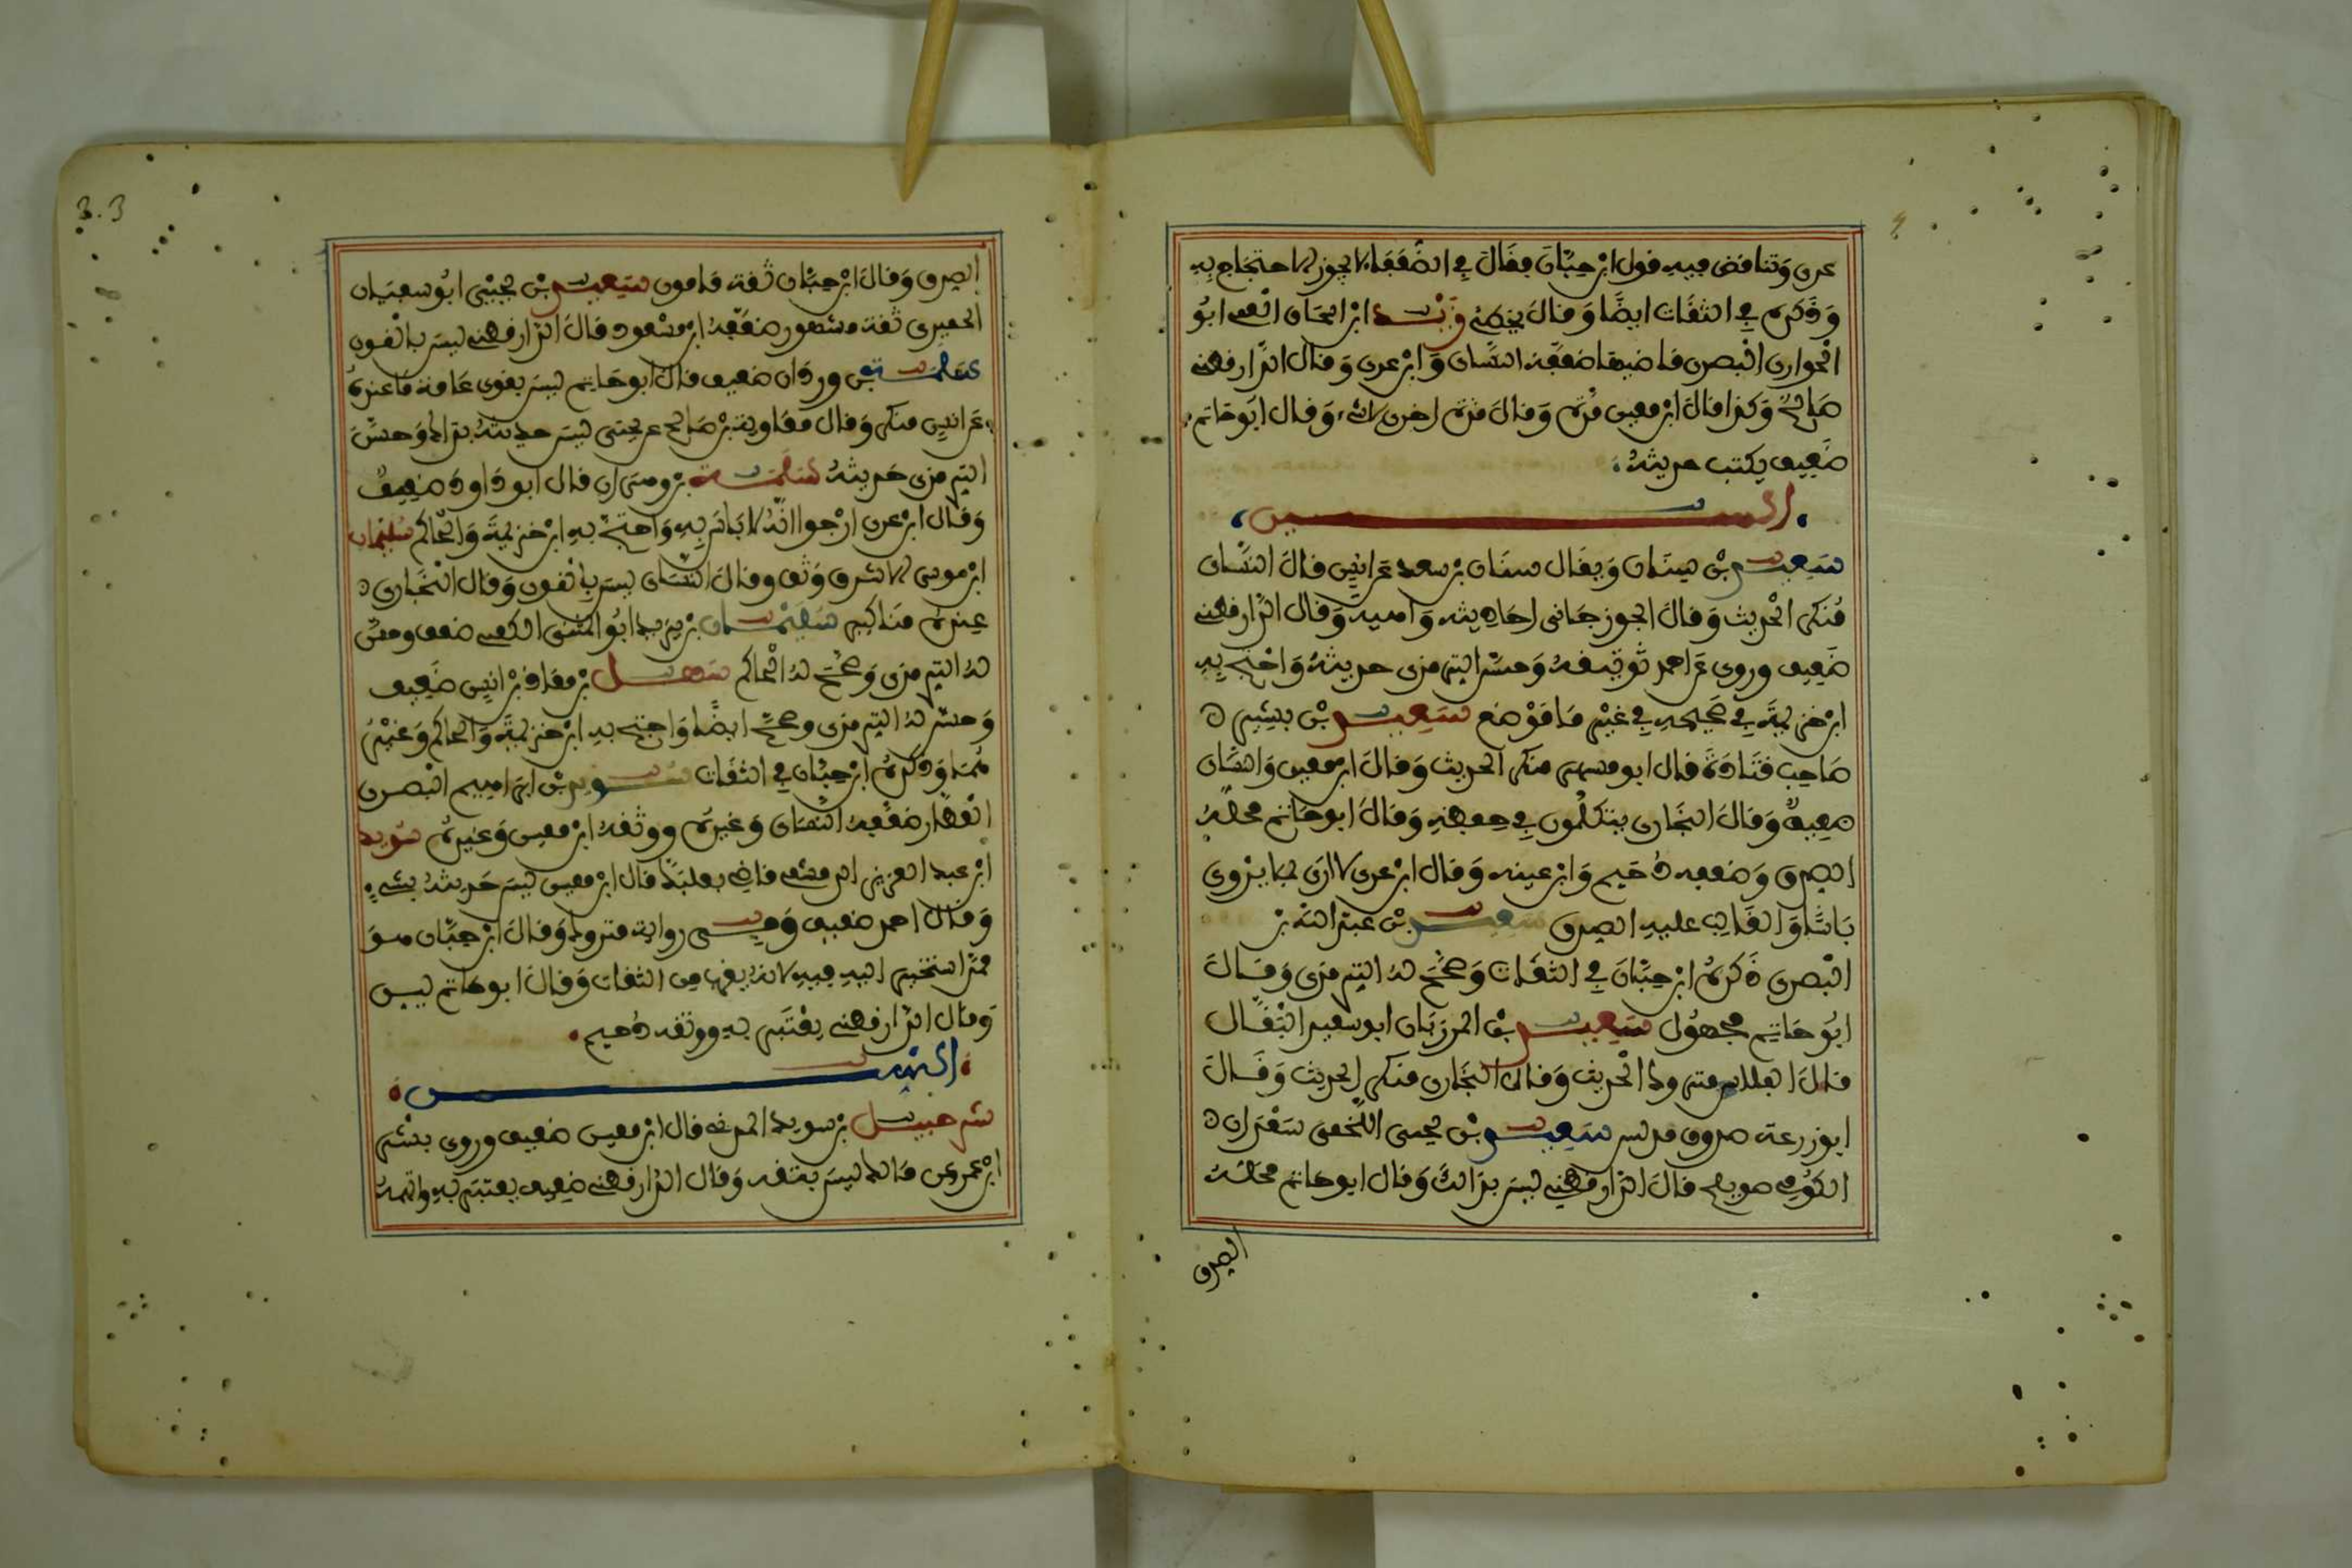 عدي وتناقض فيه قول ابن حبان فقال في الضعفاء لا يجوز الاحتجاج به
وذكره في الثقات ايضا وقال يخطئ زيد ابن الحباب العمي ابو
الحواري البصري قاضيها ضعفه النسائي وابن عدي وقال الدارقطني
صالح وكذا قال ابن معين مرة وقال مرة اخرى لا شيء وقال ابو حاتم
ضعيف يكتب حديثه
السين
سعيد بن سنان ويقال سنان بن سعد عن انس قال النسائي
منكر الحديث وقال الجوزجاني احاديثه واهية وقال الدارقطني
ضعيف وروي عن احمد توثيقه وحسن الترمذي حديثه واحتج به
ابن خزيمة في صحيحه في غير ما موضع سعيد بن بشير
صاحب قتادة قال ابو مسهر منكر الحديث وقال ابن معين والنسائي
ضعيف وقال البخاري يتكلمون في حفظه وقال ابو حاتم محله
الصدق وضعفه دحيم وابن عيينه وقال ابن عدي لا ارى بما يروي
باسا والغالب عليه الصدق سعيد بن عبد الله بن
البصري ذكره ابن حبان في الثقات وصحح له الترمذي وقال
ابو حاتم مجهول سعيد بن المرزبان ابو سعيد البقال
قال الفلاس متروك الحديث وقال البخاري منكر الحديث وقال
ابو زرعة صدوق مدلس سعيد بن يحيى اللخمي سعدان
الكوفي صويلح قال الدارقطني ليس بذاك وقال ابو حاتم محله
الصدق
3.3
الصدق وقال ابن حبان ثقة مامون سعيد بن يحيى ابو سفيان
الحميري ثقة مشهور ضعفه ابن مسعود قال الدارقطني ليس بالقوي
سلمة بن وردان ضعيف قال ابو حاتم ليس بقوي عامة ما عنده
عن انس منكر وقال معاوية بن صالح عن يحيى ليس حديثه بذاك وحسن
الترمذي حديثه سلمة بن وهرام قال ابو داود ضعيف
وقال ابن عدي ارجوا انه لا باس به واحتج به ابن خزيمة والحاكم سليمان
ابن موسى الاشدق وثق وقال النسائي ليس بالقوي وقال البخاري
عنده مناكير سليمان بن يزيد ابو المثنى الكعبي ضعف وحسن
له الترمذي وصحح له الحاكم سهل بن معاذ بن انس ضعيف
وحسن له الترمذي وصحح ايضا واحتج به ابن خزيمة والحاكم وغيرهما
وذكره ابن حبان في الثقات سويد بن ابراهيم البصري
العطار ضعفه النسائي وغيره ووثقه ابن معين وغيره سويد
ابن عبد العزيز الدمشقي قاضي بعلبك قال ابن معين ليس حديثه بشيء
وقال احمد ضعيف وفي رواية متروك وقال ابن حبان هو
ممن استخير الله فيه لانه يقرب من الثقات وقال ابو حاتم ليس
وقال الدارقطني يعتبر به ووثقه دحيم
الشين
شرحبيل بن سويد المدني قال ابن معين ضعيف وروى بشر
ابن عمر وعن مالك ليس بثقة وقال الدارقطني ضعيف يعتبر به واتهمه